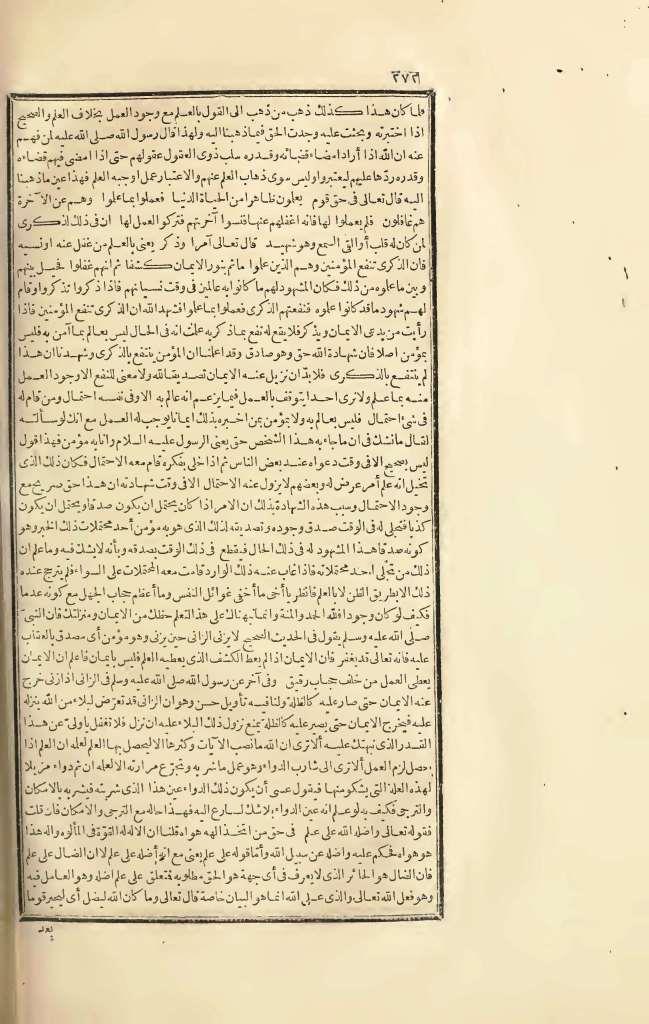 ٣٧٣
فلما كان هذا كذلك ذهب من ذهب الى القول بالعلم مع وجود العمل بخلاف العلم والصحيح
اذا اختبرته وبحثت عليه وجدت الحق فيما ذهبنا اليه ولهذا قال رسول الله صلى الله عليه لمن فهم
عنه ان الله اذا أراد امضاء قضائه وقدره سلب ذوى العقول عقولهم حتى اذا امضى فيهم قضاءه
وقدره ردّها عليهم ليعتبروا وليس سوى ذهاب العلم عنهم والاعتبار عمل اوجبه العلم فهذا عين ما ذهبنا
اليه قال تعالى فى حق قوم يعلمون ظاهرا من الحياة الدنيا فعملوا بما علموا وهم عن الآخرة
هم غافلون فلم يعملوا لها فانه اغفلهم عنها فنسوا آخرتهم فتركوا العمل لها ان فى ذلك لذكرى
لمن كان له قلب أو القى السمع وهو شهيد قال تعالى آمرا وذكر يعنى بالعلم من غفل عنه اونسيه
فان الذكرى تنفع المؤمنين وهم الذين علموا ما ثم بنور الايمان كشفا ثم انهم غفلوا فحيل بينهم
وبين ما علموه من ذلك فكان المشهود لهم ما كانوا به عالمين فى وقت نسيانهم فاذا ذكروا تذكروا وقام
لهم شهود ما قد كانوا علموه فنفعتهم الذكرى فعملوا بما علموا فشهد الله ان الذكرى تنفع المؤمنين فاذا
رأيت من يدعى الايمان ويذكر فلا يقع له نفع بما ذكر به علمت انه فى الحال ليس بعالم بما آمن به فليس
بمؤمن اصلا فان شهادة الله حق وهو صادق وقد اعلمنا ان المؤمن ينتفع بالذكرى وشهدنا ان هذا
لم ينتفع بالذكرى فلا بدّ ان نزيل عنه الايمان تصديقا لله ولا معنى للنفع الا وجود العمل
منه بما علم ولا نرى احدا يتوقف بالعمل فيما يزعم انه عالم به الا وفى نفسه احتمال ومن قام له
فى شئ احتمال فليس بعالم به ولا بمؤمن بمن اخبره بذلك ايمانا يوجب له العمل مع انك لو سألته
لقال ما نشك فى ان ما جاء به هذا الشخص حق يعنى الرسول عليه السلام وانا به مؤمن فهذا قول
ليس بصحيح الا فى وقت دعواه عند بعض الناس ثم اذا خلى بفكره قام معه الاحتمال فكان ذلك الذى
تخيل انه علم أمر عرض له وبعضهم لا يزول عنه الاحتمال الا فى وقت شهادته ان هذا حق صريح مع
وجود الاحتمال وسبب هذه الشهادة بذلك ان الامر اذا كان يحتمل ان يكون صدقا ويحتمل ان يكون
كذبا فتجلى له فى الوقت صدق وجوده وتصديقه لذلك الذى هو به مؤمن أحد محتملات ذلك الخبر وهو
كونه صدقا هذا المشهود له فى ذلك الحال فيقطع فى ذلك الوقت بصدقه وبأنه لا يشك فيه وما علم ان
ذلك من تجلى احد محتملاته فاذا غاب عنه ذلك الوارد قامت معه المحتملات على السواء فلم يترجح عنده
ذلك الا بطريق الظن لا بالعلم فانظر يا أخى ما أخفى غوائل النفس وما أعظم حجاب الجهل مع كونه عدما
فكيف لو كان وجودا فلله الحمد والمنة وانما نبهناك على هذا لتعلم حظك من الايمان ومنزلتك فان النبىّ
صلى الله عليه وسلم يقول فى الحديث الصحيح لا يزنى الزانى حين يزنى وهو مؤمن أى مصدق بالعقاب
عليه فانه تعالى قد يغفر فان الايمان اذا لم يعط الكشف الذى يعطيه العلم فليس بايمان فاعلم ان الايمان
يعطى العمل من خلف حجاب رقيق وفى آخر عن رسول الله صلى الله عليه وسلم فى الزانى اذا زنى خرج
عنه الايمان حتى صار عليه كالظلة ولنا فيه تأويل حسن وهو ان الزانى قد تعرّض لبلاء من الله ينزله
عليه فيخرج الايمان حتى يصير عليه كالظلة يمنع نزول ذلك البلاء عليه ان نزل فلا تغفل ياولىّ عن هذا
القدر الذى نبهتك عليه ألا ترى ان الله ما نصب الآيات وكثرها الا ليحصل بها العلم لعلمه ان العلم اذا
حصل لزم العمل ألا ترى الى شارب الدواء وهو عمل ما شربه وتجرّع مرارته الا لعلمه ان ثم دواء مزيلا
لهذه العلة التى يشكو منها فيقول عسى أن يكون ذلك الدواء عين هذا الذى شربته فيشربه بالامكان
والترجى فكيف به لو علم انه عين الدواء بلا شك لسارع اليه فهذا حاله مع الترجى والامكان فان قلت
فقوله تعالى واضله الله على علم فى حق من اتخذ الهه هواه قلنا ان الاله له القوّة فى المألوه واله هذا
هو هواه فحكم عليه واضله عن سبيل الله وأما قوله على علم يعنى مع انه أضله على علم لا ان الضال على علم
فان الضال هو الحائر الذى لا يعرف فى أى جهة هو الحق مطلوبه فتعلق على علم اضله وهو العامل فيه
وهو فعل الله تعالى والذى على الله انما هو البيان خاصة قال تعالى وما كان الله ليضل أى ليحير قوما
بعد